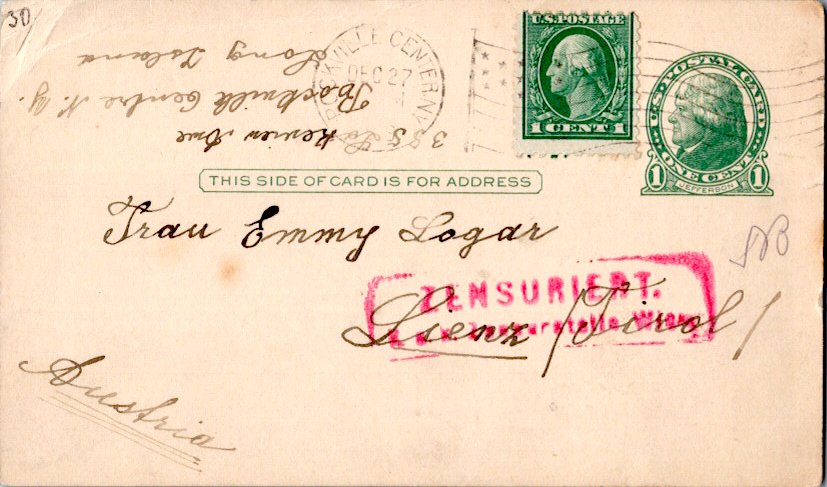 30
U.S. POSTAGE
1 CENT 1
U.S. POSTAL CARD
ONE CENT
1 JEFFERSON 1
ROCKVILLE CENTER N.Y.
DEC 27
Long Island
Rockville Centre N.Y.
Ave
THIS SIDE OF CARD IS FOR ADDRESS
Frau Emmy Logar
ZENSURIERT.
Zensurstelle Wien
Lienz /Tirol/
Austria